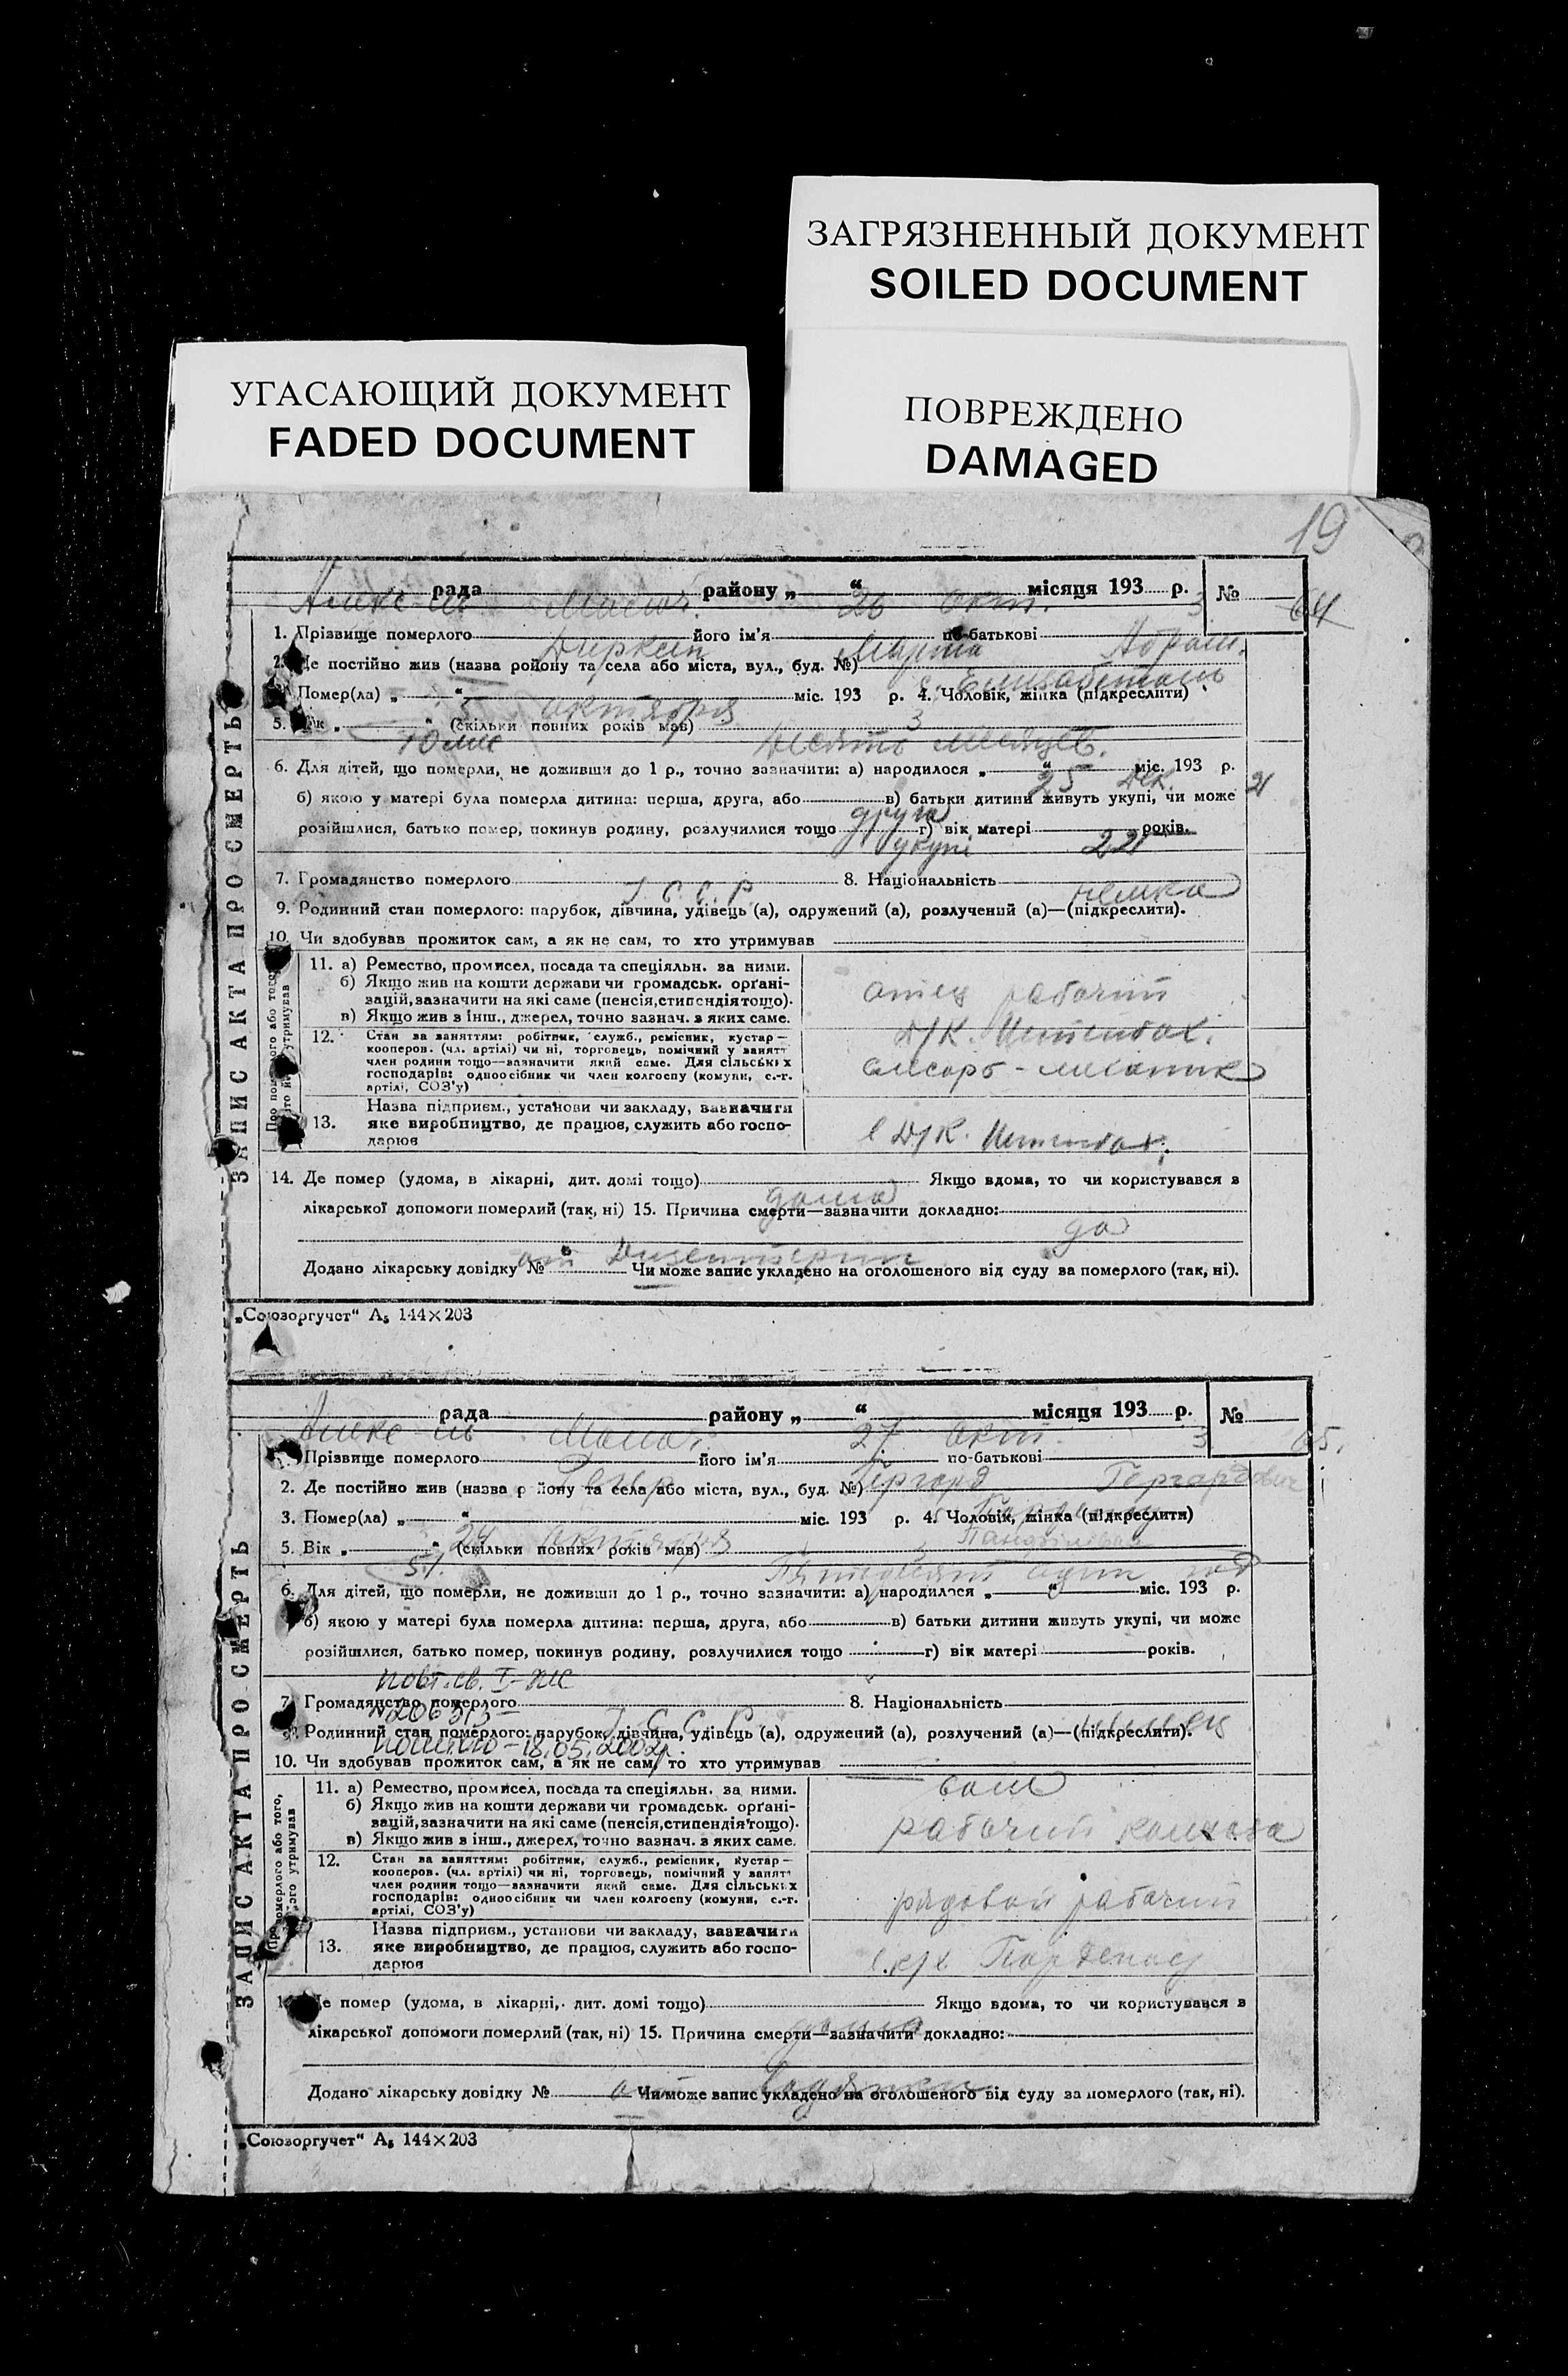 ЗАГРЯЗНЕННЫЙ ДОКУМЕНТ
SOILED DOCUMENT
УГАСАЮЩИЙ ДОКУМЕНТ
FADED DOCUMENT
ПОВРЕЖДЕНО
DAMAGED
19
ЗАПИС АКТА ПРО СМЕРТЬ
рада району „ “ місяця 193 р. №
26 окт. 3 64
1. Прізвище померлого його ім'я по-батькові
Марта Абрам.
2. Де постійно жив (назва ройону та села або міста, вул., буд. №)
Помер(ла) „ “ міс. 193 р. 4. Чоловік, жінка (підкреслити)
5 октября 3
5. Вік „ “ (скільки повних років мав)
10 мес десять месяцев.
6. Для дітей, що померли, не доживши до 1 р., точно зазначити: а) народилося „ “ міс. 193 р.
25 дек. 2
б) якою у матері була померла дитина: перша, друга, або в) батьки дитини живуть укупі, чи може
друга
розійшлися, батько помер, покинув родину, розлучилися тощо г) вік матері років.
укупі 22
7. Громадянство померлого 8. Національність
С. С. Р. немка
9. Родинний стан померлого: парубок, дівчина, удівець (а), одружений (а), розлучений (а)—(підкреслити).
10. Чи здобував прожиток сам, а як не сам, то хто утримував
11. а) Ремество, промисел, посада та спеціяльн. за ними.
б) Якщо жив на кошти держави чи громадськ. орґані-
зацій, зазначити на які саме (пенсія, стипендія тощо).
в) Якщо жив з інш., джерел, точно зазнач. з яких саме.
отец рабочий
12. Стан за заняттям: робітник, служб., ремісник, кустар—
кооперов. (чл. артілі) чи ні, торговець, помічний у занятт
член родини тощо—зазначити який саме. Для сільських
господарів: одноосібник чи член колгоспу (комуни, с.-г.
артілі, СОЗ'у)
слесарь - механик
Назва підприєм., установи чи закладу, зазначити
13. яке виробництво, де працює, служить або госпо-
дарює
14. Де помер (удома, в лікарні, дит. домі тощо) Якщо вдома, то чи користувався з
дома
лікарської допомоги померлий (так, ні) 15. Причина смерти—зазначити докладно:
да
от Дизентерии
Додано лікарську довідку № Чи може запис укладено на оголошеного від суду за померлого (так, ні).
„Союзоргучет“ А5 144×203
ЗАПИС АКТА ПРО СМЕРТЬ
рада району „ “ місяця 193 р. №
27 окт. 3 65.
Прізвище померлого його ім'я по-батькові
Гергард Гергардович
2. Де постійно жив (назва району та села або міста, вул., буд. №)
3. Помер(ла) „ “ міс. 193 р. 4. Чоловік, жінка (підкреслити)
24 октября 3
5. Вік „ “ (скільки повних років мав)
51. Пятьдесят один год
6. Для дітей, що померли, не доживши до 1 р., точно зазначити: а) народилося „ “ міс. 193 р.
б) якою у матері була померла дитина: перша, друга, або в) батьки дитини живуть укупі, чи може
розійшлися, батько помер, покинув родину, розлучилися тощо г) вік матері років.
повт. св. I-ЖС
7. Громадянство померлого 8. Національність
№206313
С. С. Р. немец
9. Родинний стан померлого: парубок, дівчина, удівець (а), одружений (а), розлучений (а)—(підкреслити).
18.05.2002р.
10. Чи здобував прожиток сам, а як не сам, то хто утримував
сам
11. а) Ремество, промисел, посада та спеціяльн. за ними.
б) Якщо жив на кошти держави чи громадськ. орґані-
зацій, зазначити на які саме (пенсія, стипендія тощо).
в) Якщо жив з інш., джерел, точно зазнач. з яких саме.
рабочий колхоза
12. Стан за заняттям: робітник, служб., ремісник, кустар—
кооперов. (чл. артілі) чи ні, торговець, помічний у занятт
член родини тощо—зазначити який саме. Для сільських
господарів: одноосібник чи член колгоспу (комуни, с.-г.
артілі, СОЗ'у)
рядовой рабочий
Назва підприєм., установи чи закладу, зазначити
13. яке виробництво, де працює, служить або госпо-
дарює
Де помер (удома, в лікарні, дит. домі тощо) Якщо вдома, то чи користувався з
дома
лікарської допомоги померлий (так, ні) 15. Причина смерти—зазначити докладно:
Додано лікарську довідку № Чи може запис укладено на оголошеного від суду за померлого (так, ні).
„Союзоргучет“ А5 144×203